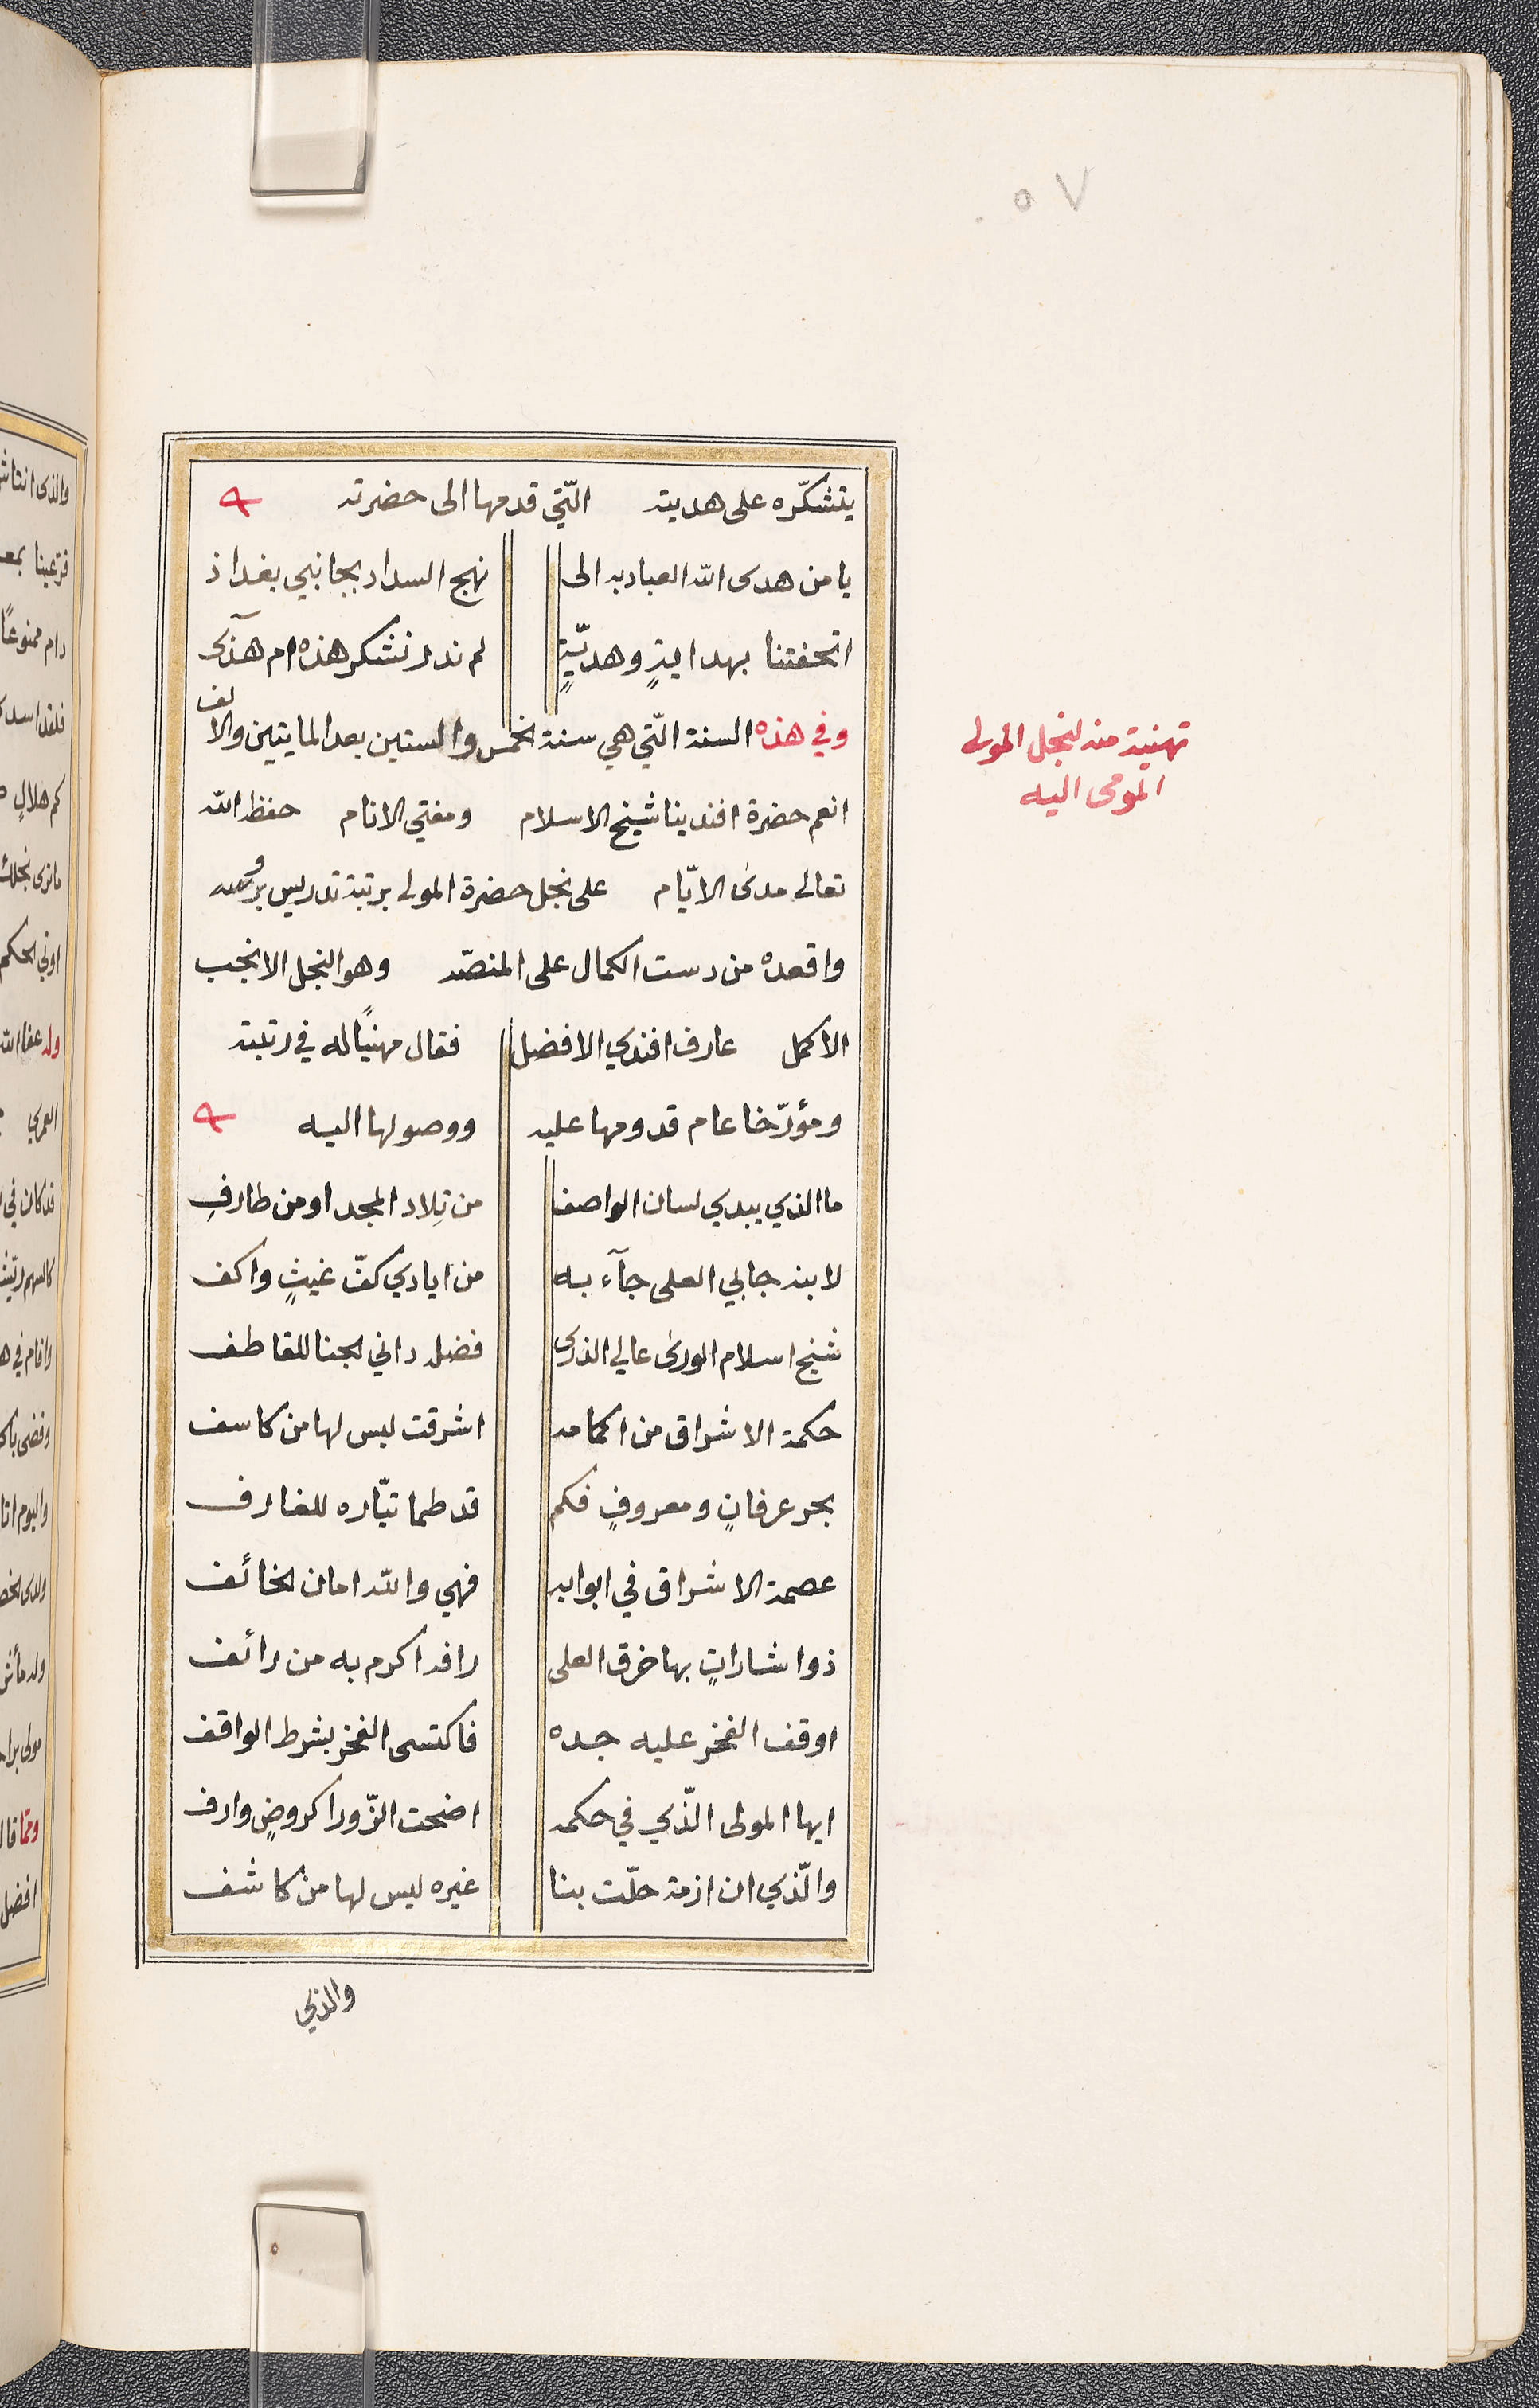 ٥٧
يتشكّره على هديته التّي قدمها الى حضرته
يا من هدى الله العباد به الى نهج السداد بجانبي بغداذ
اتحفتنا بهدايةٍ وهديّةٍ لم ندر نشكر هذه ام هذى
وفي هذه السنة التّي هي سنة الخمس والستين بعد المايتين والالف
تهنية منه لنجل المولى
المومى اليه
انعم حضرة افندينا شيخ الاسلام ومفتي الانام حفظ الله
تعالى مدى الايّام على نجل حضرة المولى برتبة تدريس بروسه
واقعده من دست الكمال على المنصّه وهو النجل الانجب
الاكمل عارف افندي الافضل فقال مهنيًا له في رتبته
ومؤرّخا عام قدومها عليه ووصولها اليه
ما الذي يبدي لسان الواصف من تِلاد المجد او من طارفِ
لابنه جابي العلى جآء به من ايادي كفّ غيثٍ واكف
شيخ اسلام الورى عالي الذرى فضله داني الجنا للقاطف
حكمة الاشراق من اكمامه اشرقت ليس لها من كاسف
بحر عرفانٍ ومعروفٍ فكم قد طما تيّاره للغارف
عصمة الاشراق في ابوابه فهي والله امان الخائف
ذو اشاراتٍ بها خرق العلى رافد اكرم به من رائف
اوقف الفخر عليه جده فاكتسى الفخر بشرط الواقف
ايها المولى الّذي في حكمه اضحت الزّورا كروضٍ وارف
والّذي ان ازمة حلّت بنا غيره ليس لها من كاشف
والذي